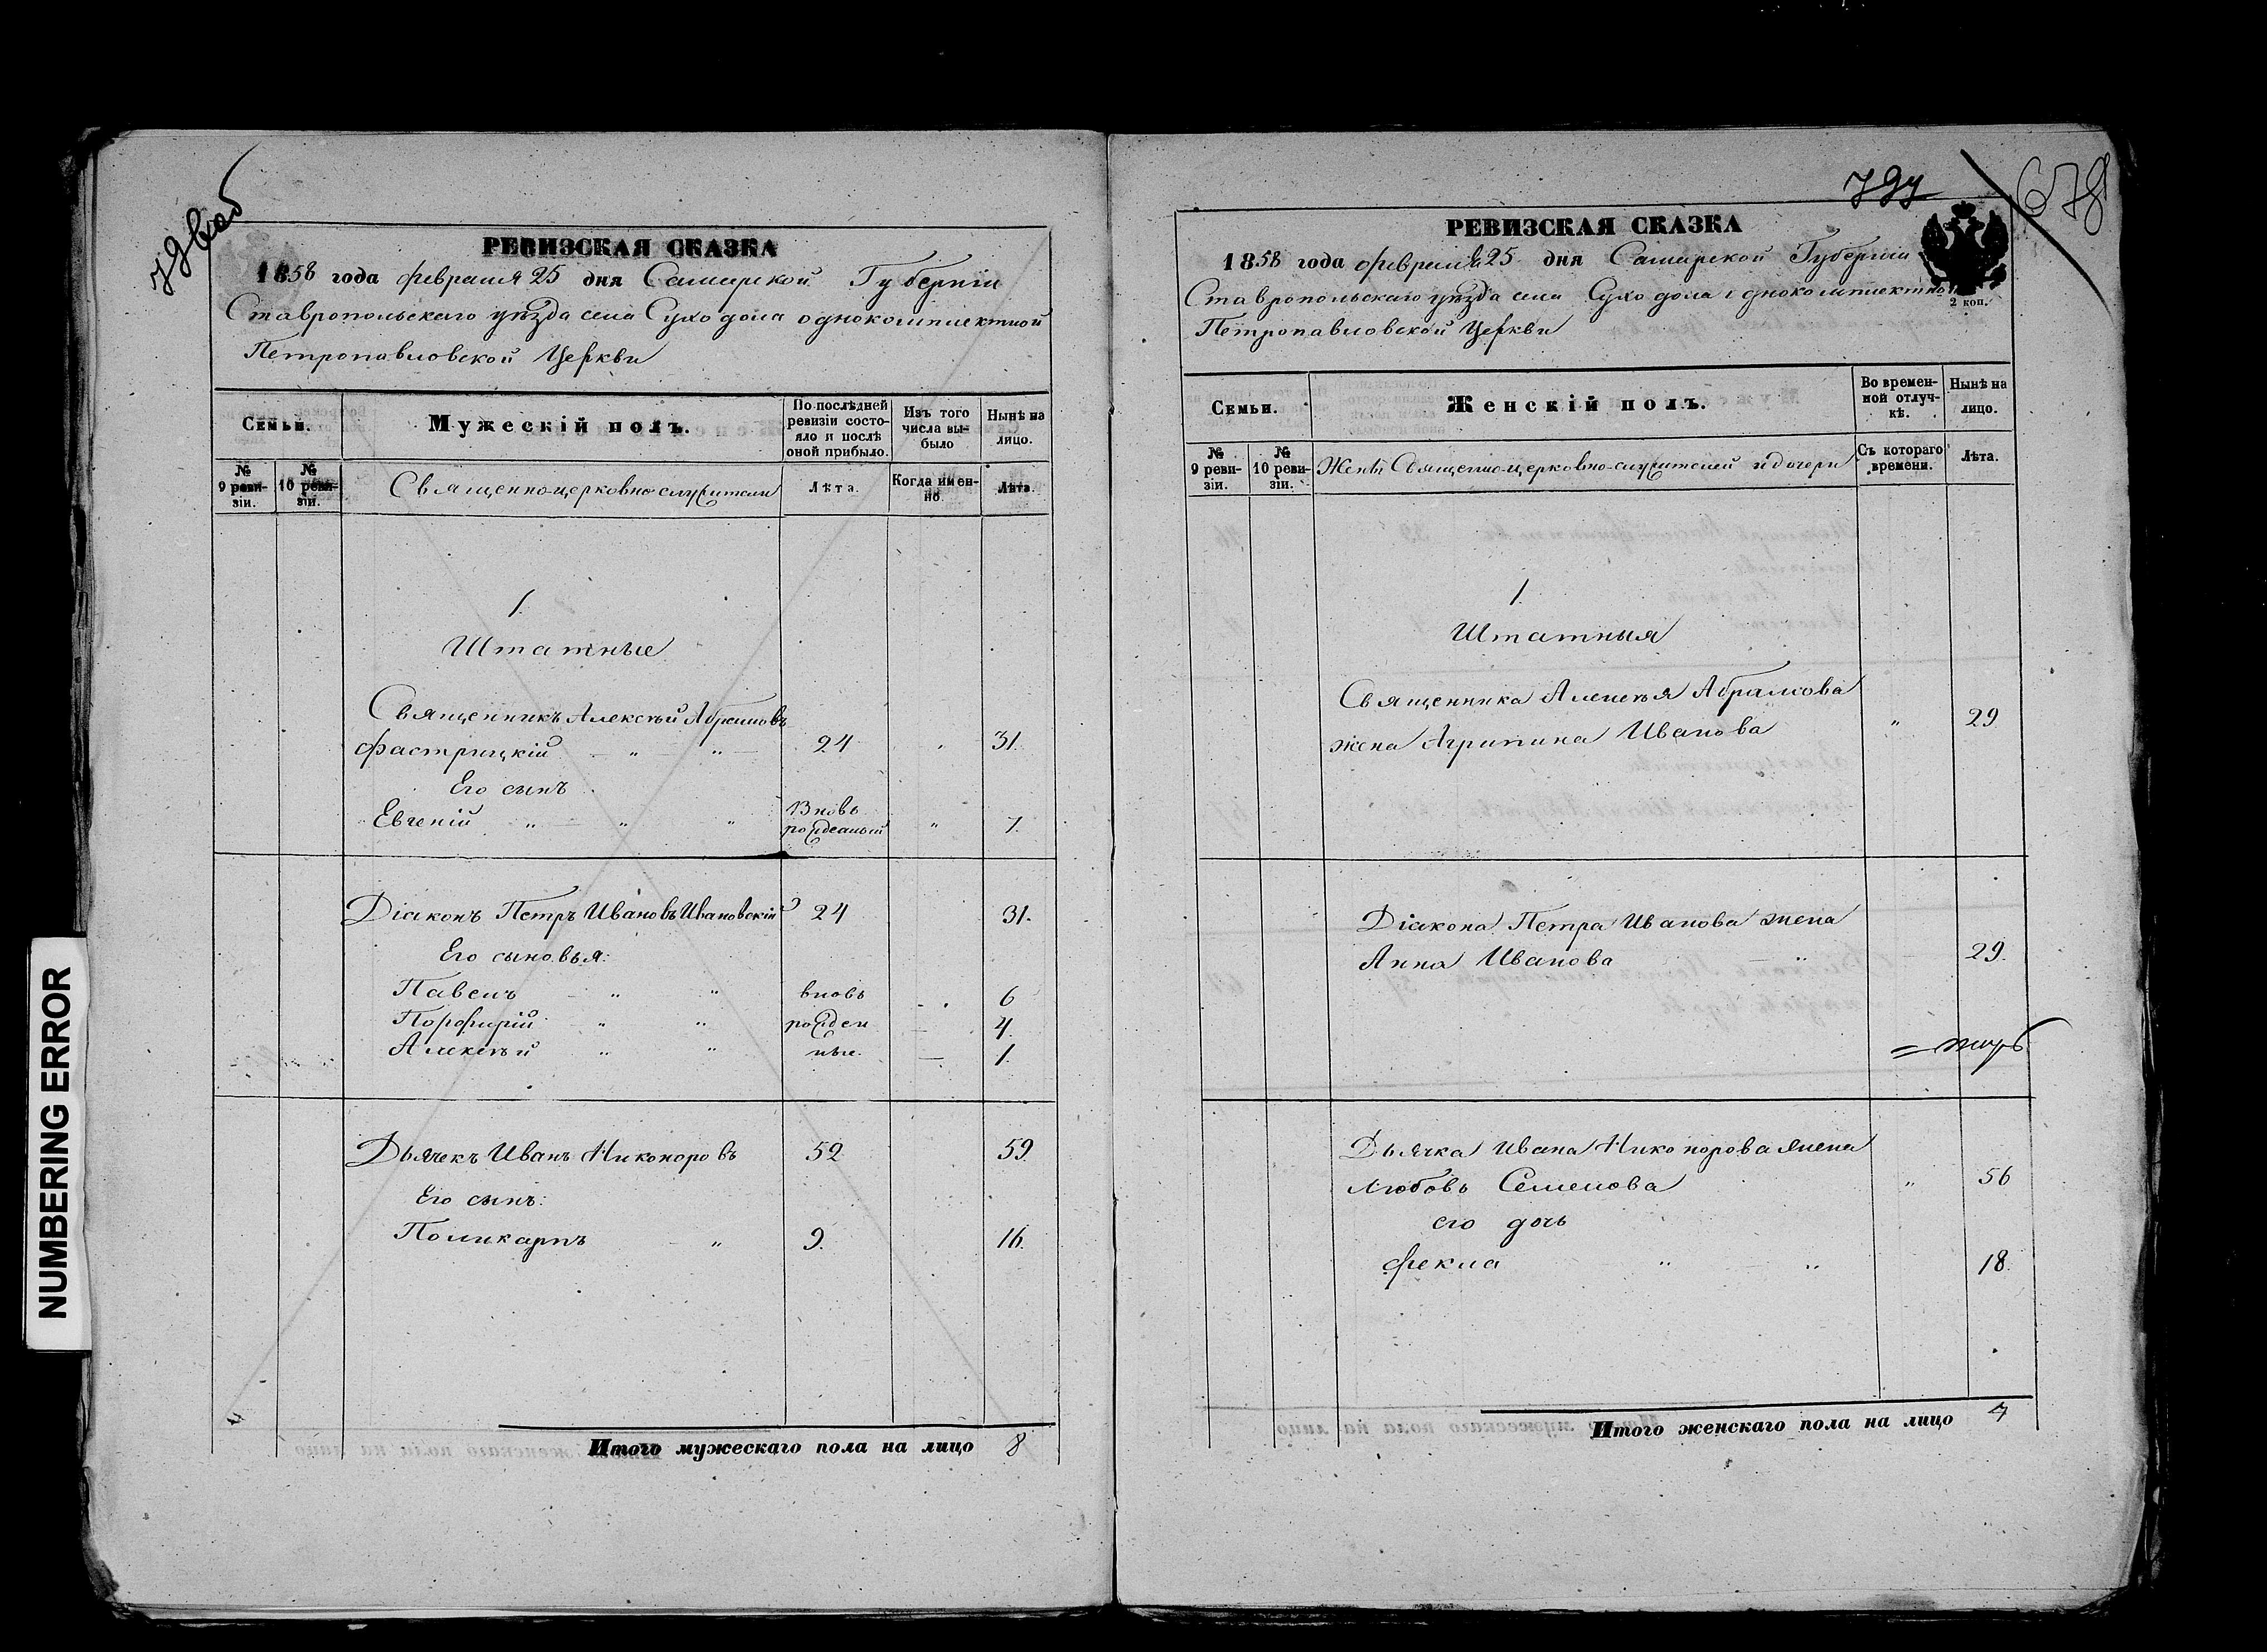 NUMBERING ERROR
РЕВИЗСКАЯ СКАЗКА
1858 года февраля 25 дня Самарской Губерніи
Ставропольскаго уѣзда села Суходола однокомплектной
Петропавловской Церкви
Семьи.
Мужескій полъ.
По послѣдней ревизіи состояло и послѣ оной прибыло.
Изъ того числа выбыло
Нынѣ на лицо.
№ 9 ревизіи.
№ 10 ревизіи.
Священно-церковно-служители
Лѣта.
Когда именно
Лѣта.
1.
Штатные
Священникъ Алексѣй Абрамовъ
Фастрицкій — " — " — 24 31.
Его сынъ
Евгеній " — " " Вновь рожденный " 7.
Діаконъ Петръ Ивановъ Ивановскій 24 31.
Его сыновья:
Павелъ " " вновь 6
Порфирій " " рожден 4.
Алексѣй " " ные. — 1.
Дьячекъ Иванъ Никоноровъ 52 59
Его сынъ:
Поликарпъ " 9. 16.
Итого мужескаго пола на лицо 8
797
678
РЕВИЗСКАЯ СКАЗКА
1858 года февраля 25 дня Самарской Губерніи
2 коп.
Ставропольскаго уѣзда села Суходола однокомплектной
Петропавловской Церкви
Семьи.
Женскій полъ.
Во временной отлучкѣ.
Нынѣ на лицо.
№ 9 ревизіи.
№ 10 ревизіи.
Жены Священно-церковно-служителей и дочери
Съ котораго времени.
Лѣта.
1.
Штатныя
Священника Алексѣя Абрамова
жена Агрипина Иванова " 29
Діакона Петра Иванова жена
Анна Иванова — " 29.
Дьячка Ивана Никонорова жена
Любовь Семенова " 56
его дочь
Фекла " " 18.
Итого женскаго пола на лицо 4